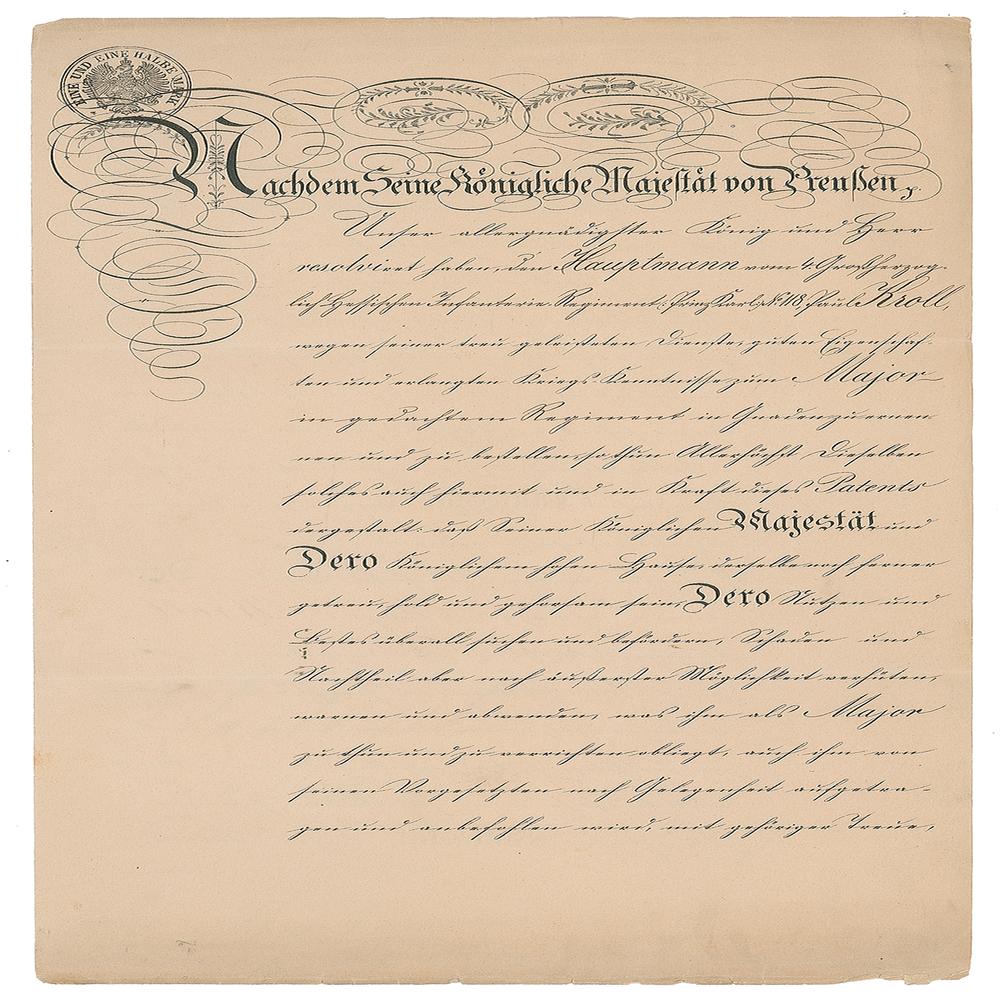 EINE UND EINE HALBE MARK
Nachdem Seine Königliche Majestät von Preußen,
Unser allergnädigster König und Herr
resolviret haben, den Hauptmann vom 4. Großherzog-
lich Hessischen Infanterie-Regiment (: Prinz Carl :) Nr. 118, Paul Kroll,
wegen seiner treu geleisteten Dienste, guten Eigenschaf-
ten und erlangten Kriegs-Kenntnisse zum Major
in gedachtem Regiment in Gnaden zu ernen-
nen und zu bestellen; so thun Allerhöchst Dieselben
solches auch hiermit und in Kraft dieses Patents
dergestalt: daß Seiner Königlichen Majestät und
Dero Königlichem hohen Hause, derselbe noch ferner
getreu, hold und gehorsam sein, Dero Nutzen und
Bestes überall suchen und befördern, Schaden und
Nachtheil aber nach äußerster Möglichkeit verhüten,
warnen und abwenden, was ihm als Major
zu thun und zu verrichten obliegt, auch ihm von
seinen Vorgesetzten nach Gelegenheit aufgetra-
gen und anbefohlen wird, mit gehöriger Treue,